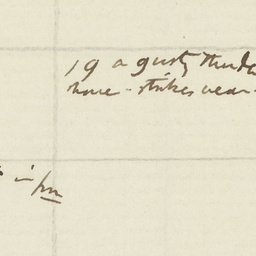 19 a gusty thund
more - strikes near -
in fm